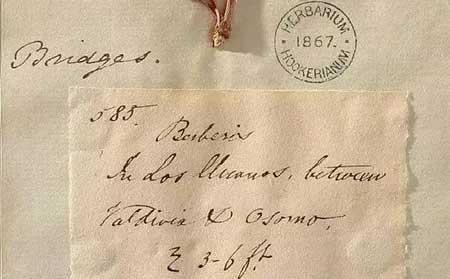 HERBARIUM HOOKERIANUM
1867.
Bridges.
585.
Berberis
In Los Llanos, between
Valdivia & Osorno,
3-6 ft.